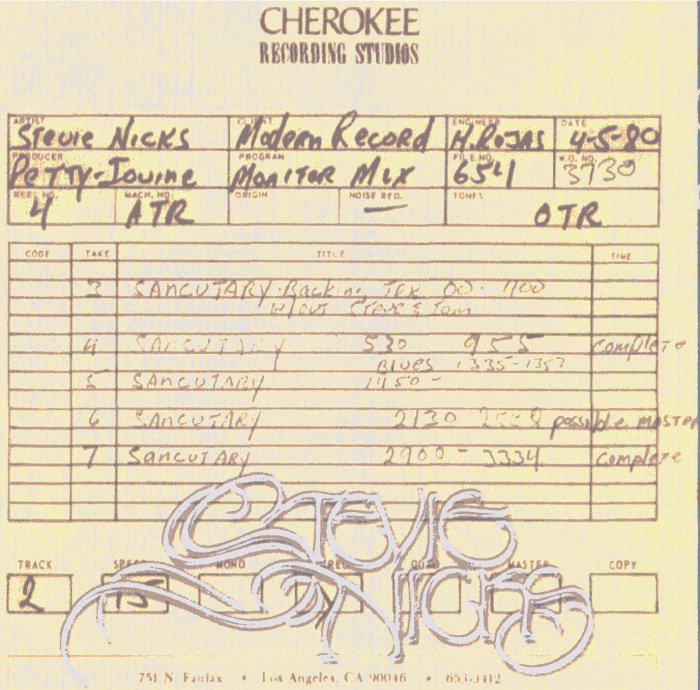 CHEROKEE
RECORDING STUDIOS
ARTIST CLIENT ENGINEER DATE
Stevie Nicks Modern Record H.Rojas 4-5-80
PRODUCER PROGRAM FILE NO. W.O. NO.
Petty-Iovine Monitor Mix 6541 3730
REEL NO. MACH. NO. ORIGIN NOISE RED. TONES
4 ATR — OTR
CODE TAKE TITLE TIME
3 SANCUTARY Back no TRK 00- 400
w/out Stevie & Tom
4 SANCUTARY 530 955 complete
BLUES 1335-1357
5 SANCUTARY 1450 -
6 SANCUTARY 2130 possible master
7 SANCUTARY 2900 - 3334 complete
STEVIE
NICKS
TRACK MONO MASTER COPY
2 15
751 N. Fairfax • Los Angeles, CA 90046 • 653-3412